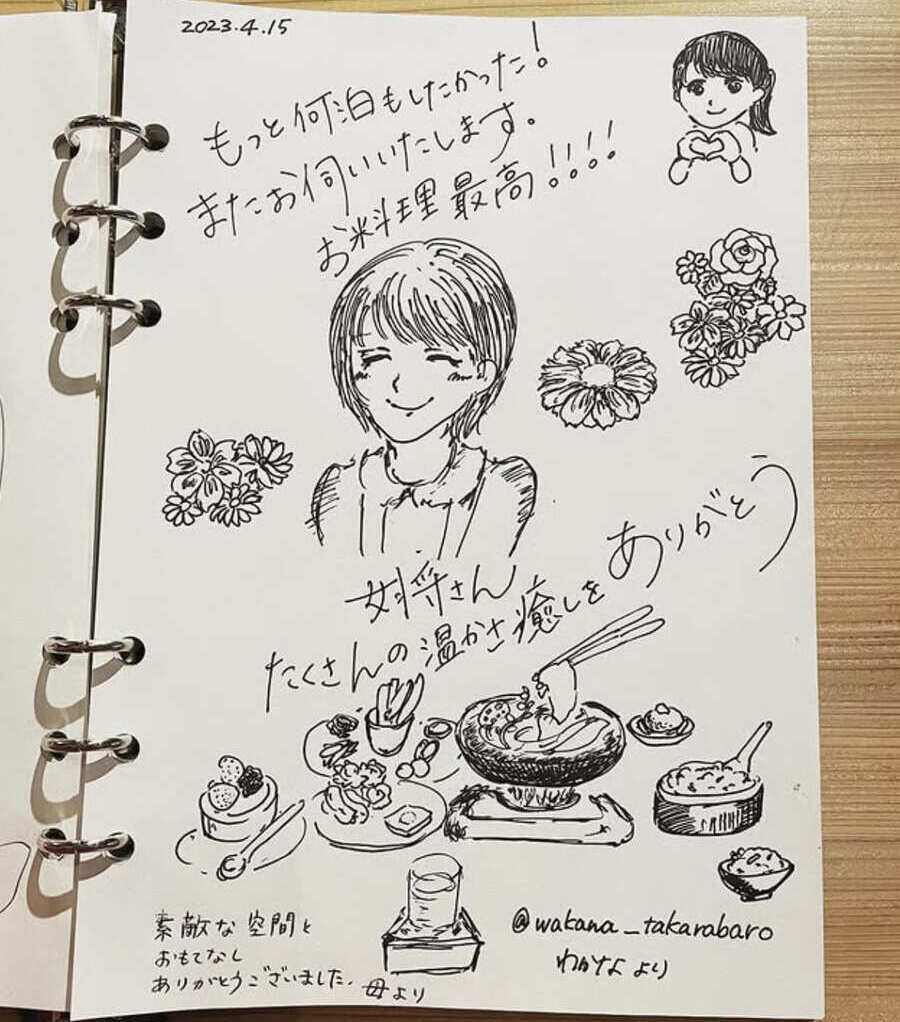 2023.4.15
もっと何泊もしたかった!
またお伺いいたします。
お料理最高!!!!
女将さん
たくさんの温かさ癒しを
ありがとう
素敵な空間と
おもてなし
ありがとうございました.
母より
@wakana_takarabaro
わかなより